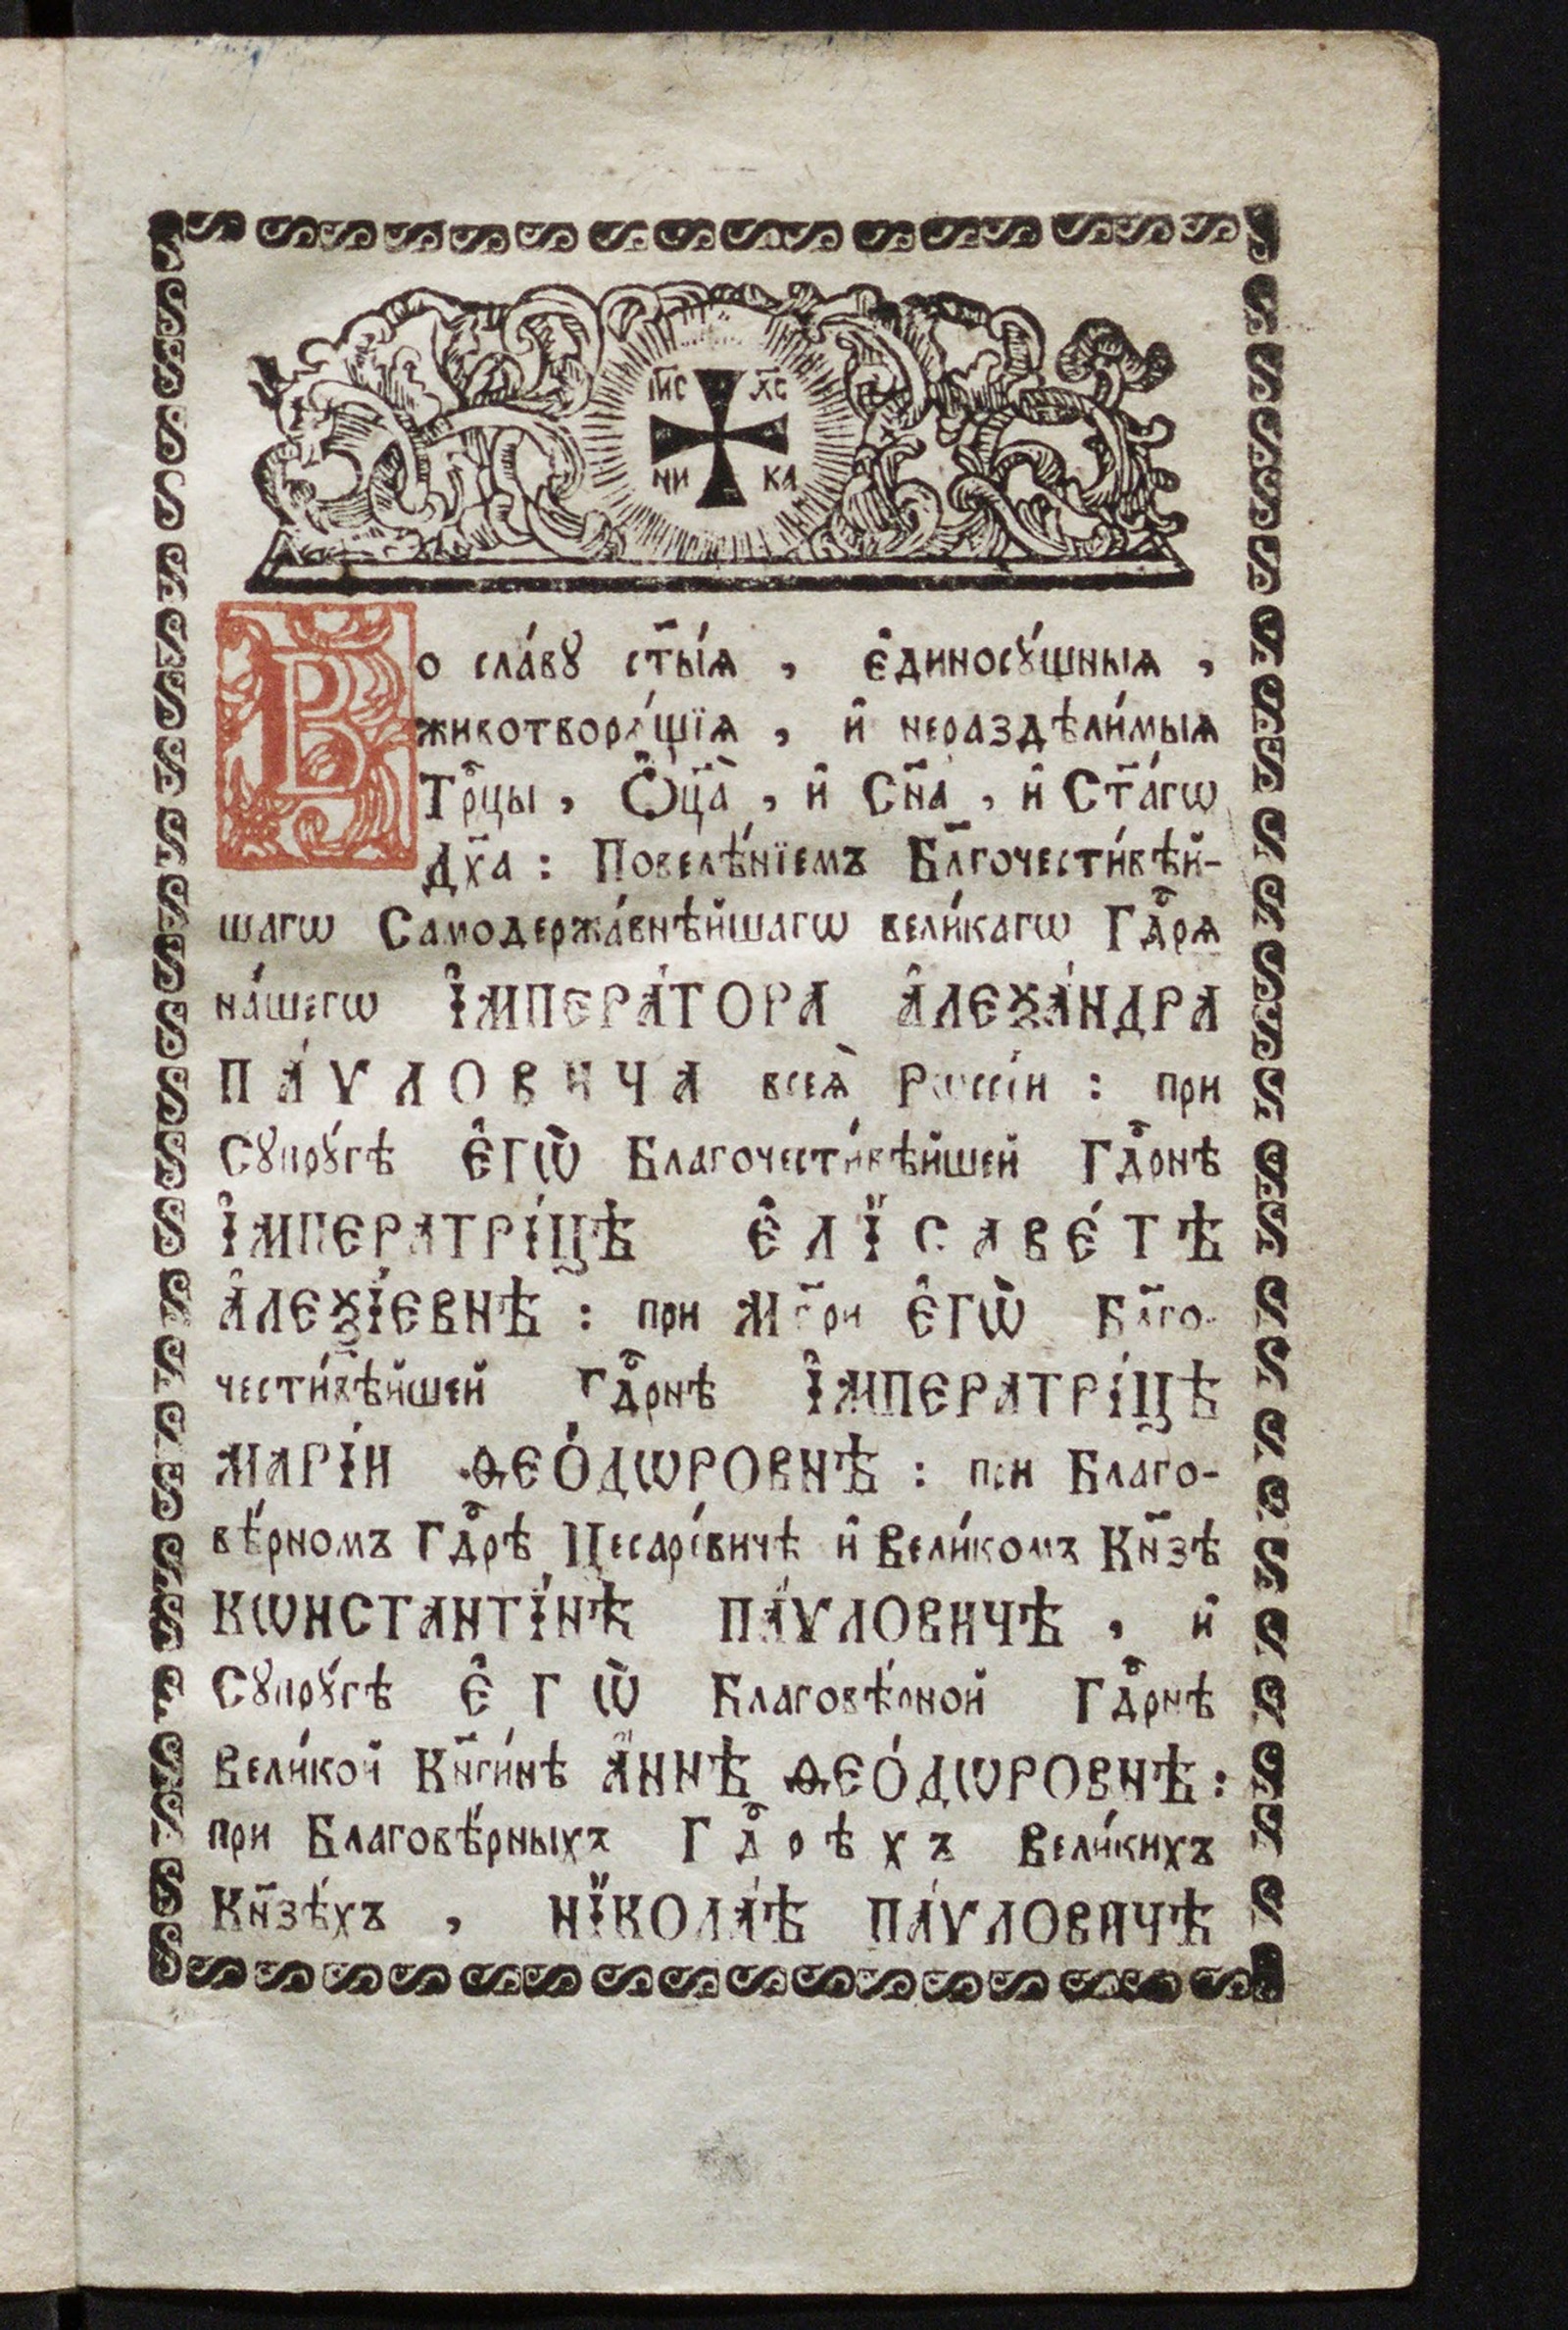 І҆И҃С Х҃С
НИ КА
Во сла́вꙋ ст҃ы́ѧ , є҆диносꙋ́щныѧ ,
животворѧ́щїѧ , и҆ нераздѣли́мыѧ
Трⷪ҇цы , Ѻ҆ц҃а̀ , и҆ Сн҃а , и҆ Ст҃а́гѡ
Дх҃а : Повелѣ́нїемъ Бл҃гочести́вѣй-
шагѡ Самодержа́внѣйшагѡ вели́кагѡ Гдⷭ҇рѧ
на́шегѡ І҆МПЕРА́ТОРА А҆ЛЕѮА́НДРА
ПА́ѴЛОВИЧА всеѧ̀ Рѡссі́и : при
Сꙋпрꙋ́гѣ Є҆ГѠ̀ Благочести́вѣйшей Гдⷭ҇рнѣ
І҆МПЕРАТРІ́ЦѢ Є҆ЛІ҆САВЕ́ТѢ
А҆ЛЕѮІ́ЕВНѢ : при Мт҃ри Є҆ГѠ̀ Бл҃го-
чести́вѣйшей Гдⷭ҇рнѣ І҆МПЕРАТРІ́ЦѢ
МАРІ́И ѲЕО́ДѠРОВНѢ : при Благо-
вѣ́рномъ Гдⷭ҇рѣ Цесаре́вичѣ и҆ Вели́комъ Кн҃зѣ
КѠНСТАНТІ́НѢ ПА́ѴЛОВИЧѢ , и҆
Сꙋпрꙋ́гѣ Є҆ГѠ̀ Благовѣ́рной Гдⷭ҇рнѣ
Вели́кой Кн҃ги́нѣ А҆́ННѢ ѲЕО́ДѠРОВНѢ :
при Благовѣ́рныхъ Гдⷭ҇рѣхъ Вели́кихъ
Кн҃зѣ́хъ , НЇКОЛА́Ѣ ПА́ѴЛОВИЧѢ